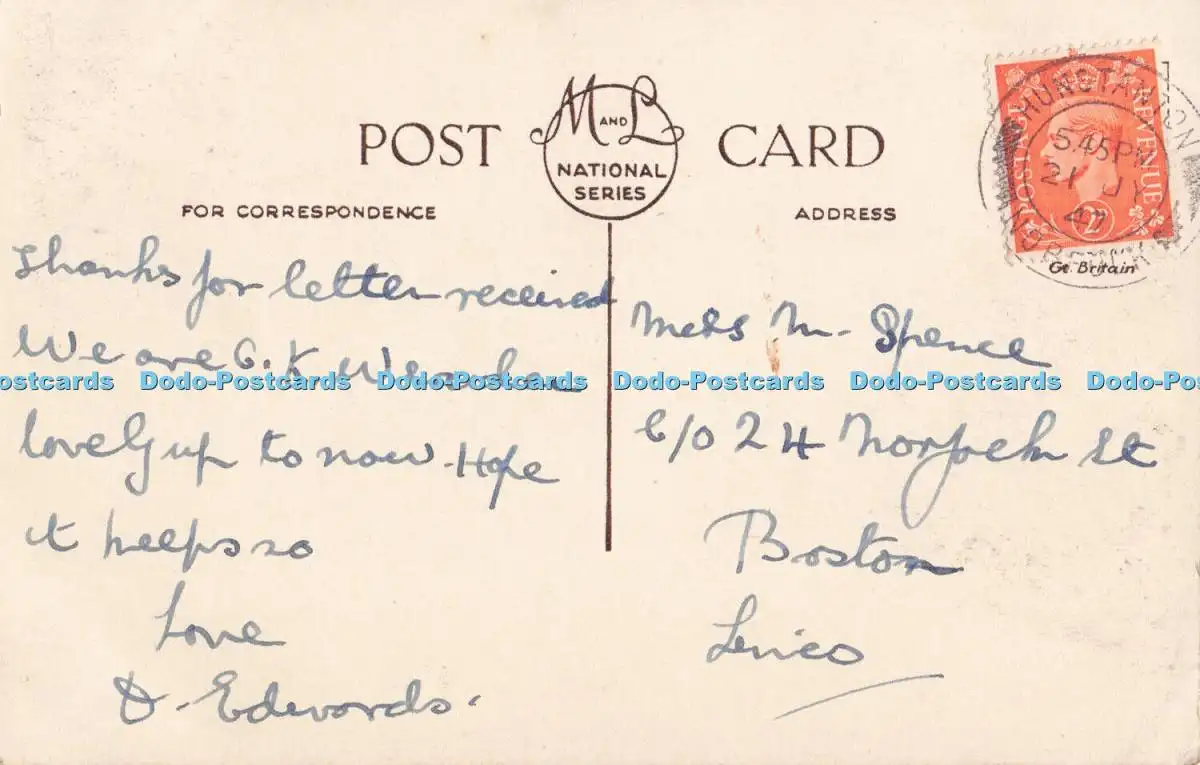 POST CARD
M AND L
NATIONAL
SERIES
FOR CORRESPONDENCE
ADDRESS
POSTAGE REVENUE
2D
HUNSTANTON
5.45 PM
21 JY
47
NORFOLK
Gt. Britain
Thanks for letter received
We are O.K Weather
lovely up to now - Hope
it keeps so
Love
D. Edwards.
M. Spence
C/O 24 Norfolk St
Boston
Lincs
Dodo-Postcards Dodo-Postcards Dodo-Postcards Dodo-Postcards Dodo-Postcards Dodo-Postcards